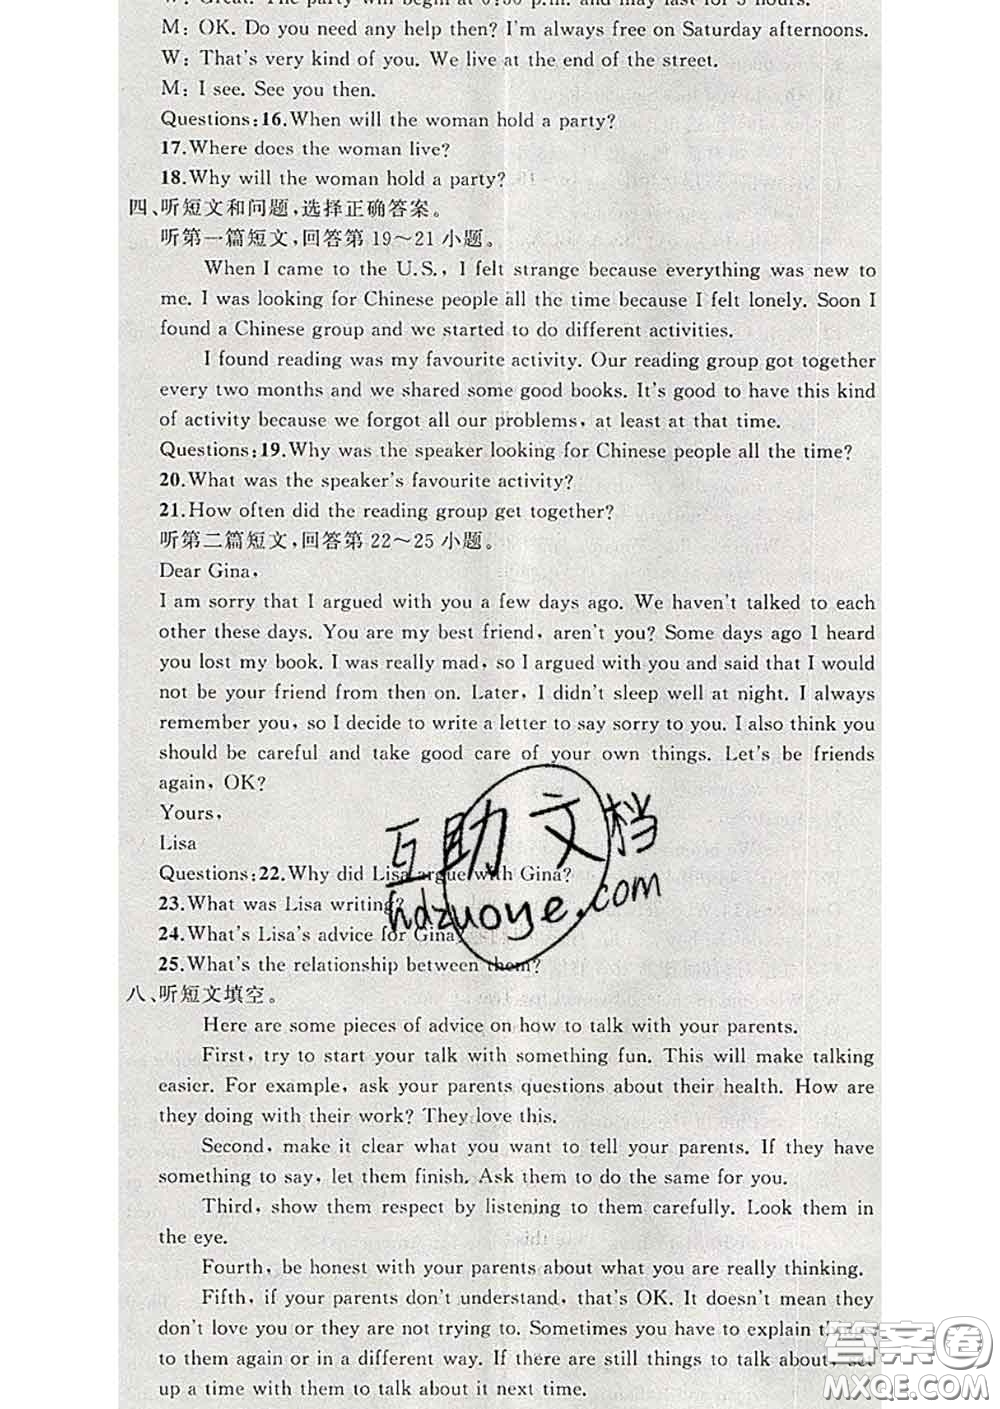 W: Great. The party will begin at 6:30 p.m. and may last for 3 hours.
M: OK. Do you need any help then? I'm always free on Saturday afternoons.
W: That's very kind of you. We live at the end of the street.
M: I see. See you then.
Questions:16.When will the woman hold a party?
17.Where does the woman live?
18.Why will the woman hold a party?
四、听短文和问题,选择正确答案。
听第一篇短文,回答第 19～21 小题。
When I came to the U.S., I felt strange because everything was new to
me. I was looking for Chinese people all the time because I felt lonely. Soon I
found a Chinese group and we started to do different activities.
I found reading was my favourite activity. Our reading group got together
every two months and we shared some good books. It's good to have this kind
of activity because we forgot all our problems, at least at that time.
Questions:19.Why was the speaker looking for Chinese people all the time?
20.What was the speaker's favourite activity?
21.How often did the reading group get together?
听第二篇短文,回答第 22～25 小题。
Dear Gina,
I am sorry that I argued with you a few days ago. We haven't talked to each
other these days. You are my best friend, aren't you? Some days ago I heard
you lost my book. I was really mad, so I argued with you and said that I would
not be your friend from then on. Later, I didn't sleep well at night. I always
remember you, so I decide to write a letter to say sorry to you. I also think you
should be careful and take good care of your own things. Let's be friends
again, OK?
Yours,
Lisa
互助文档
Questions:22.Why did Lisa argue with Gina?
hdzuoye.com
23.What was Lisa writing?
24.What's Lisa's advice for Gina?
25.What's the relationship between them?
八、听短文填空。
Here are some pieces of advice on how to talk with your parents.
First, try to start your talk with something fun. This will make talking
easier. For example, ask your parents questions about their health. How are
they doing with their work? They love this.
Second, make it clear what you want to tell your parents. If they have
something to say, let them finish. Ask them to do the same for you.
Third, show them respect by listening to them carefully. Look them in
the eye.
Fourth, be honest with your parents about what you are really thinking.
Fifth, if your parents don't understand, that's OK. It doesn't mean they
don't love you or they are not trying to. Sometimes you have to explain things
to them again or in a different way. If there are still things to talk about, set
up a time with them to talk about it next time.
答案圈
MXQE.COM